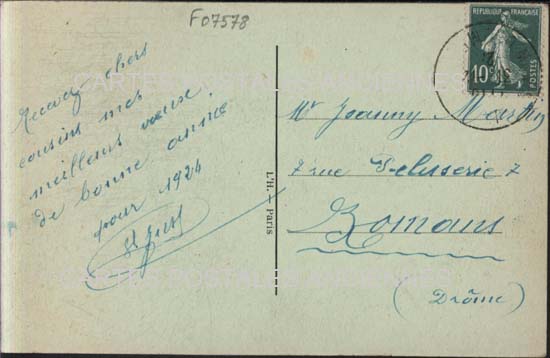 F07578
REPUBLIQUE FRANÇAISE
10c
POSTES
Recevez chers
cousins mes
meilleurs vœux
de bonne année
pour 1924
L'H. - Paris
Mr Joanny Martin
7 rue Pelisserie 7
Romans
(Drôme)
CARTES POSTALES ANCIENNES
CARTES POSTALES ANCIENNES